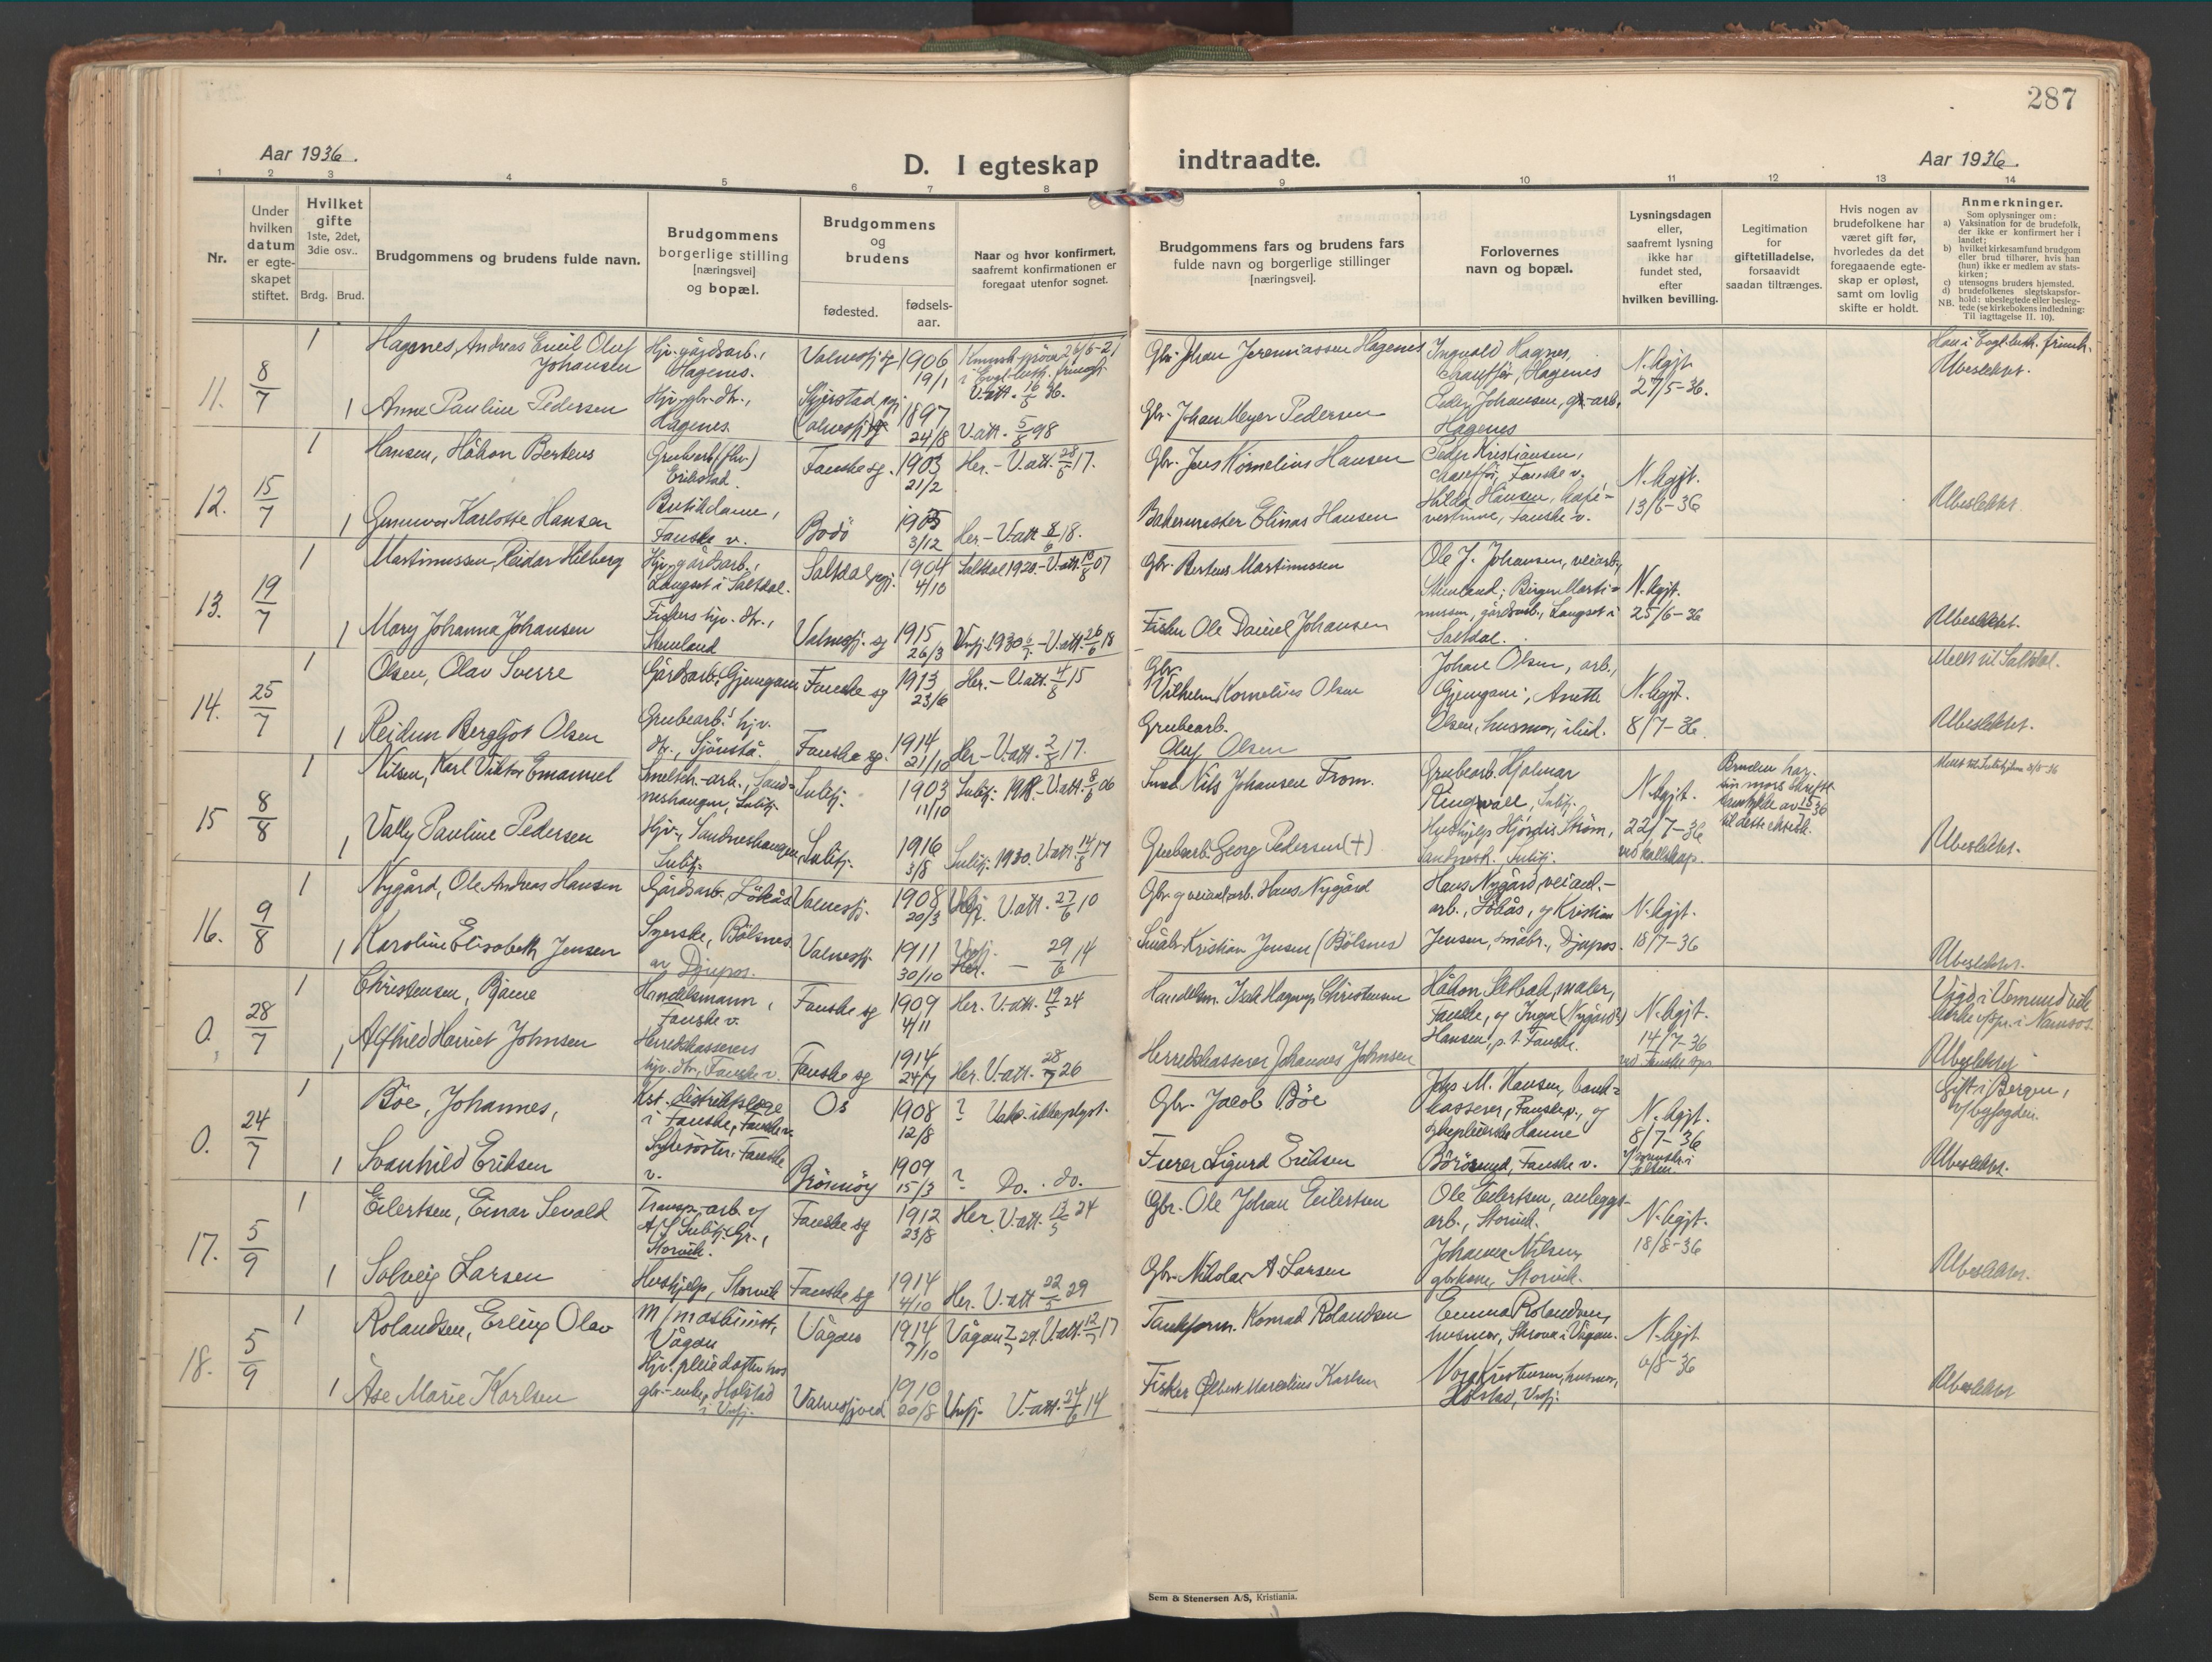 287
Aar 1936.
D. I egteskap indtraadte.
Aar 1936.
1 2 3 4 5 6 7 8 9 10 11 12 13 14
Nr.
Under hvilken datum er egteskapet stiftet.
Hvilket gifte
1ste, 2det, 3die osv..
Brdg. Brud.
Brudgommens og brudens fulde navn.
Brudgommens borgerlige stilling [næringsvei] og bopæl.
Brudgommens og brudens
fødested.
fødselsaar.
Naar og hvor konfirmert, saafremt konfirmationen er foregaat utenfor sognet.
Brudgommens fars og brudens fars fulde navn og borgerlige stillinger [næringsvei].
Forlovernes navn og bopæl.
Lysningsdagen eller, saafremt lysning ikke har fundet sted, efter hvilken bevilling.
Legitimation for giftetilladelse, forsaavidt saadan tiltrænges.
Hvis nogen av brudefolkene har været gift før, hvorledes da det foregaaende egteskap er opløst, samt om lovlig skifte er holdt.
Anmerkninger.
Som oplysninger om:
a) Vaksination for de brudefolk, der ikke er konfirmert her i landet;
b) hvilket kirkesamfund brudgom eller brud tilhører, hvis han (hun) ikke er medlem av statskirken;
c) utensogns bruders hjemsted.
d) brudefolkenes slegtskapsforhold: ubeslegtede eller beslegtede (se kirkebokens indledning: Til iagttagelse II. 10).
NB.
11. 8/7
1 Hagenes, Andreas Emil Oluf Johansen
Hjv. gårdsarb., Hagenes.
Valnesfj. sg 1906 19/1
i Evgl-luth. V-att. 16/5 36.
Gbr. Johan Jeremiassen Hagenes
Ingvald Hagnes, chauffør, Hagenes
N. lyst 27/5-36.
Han i Evgl-luth. frimh.
Ubeslektet.
1 Anne Pauline Pedersen
Hjv. gbr-dtr., Hagenes
Skjerstad pgj. 1897 24/8
V-att. 5/8 98
Gbr. Johan Meyer Pedersen
Peder Johansen, arb., Hagenes
12. 15/7
1 Hansen, Håkon Berteus
Grubearb (fhv.) Erikstad.
Fauske sg. 1903 21/2
Her. - V-att. 28/6 17.
Gbr. Jens Kornelius Hansen
Peder Kristiansen, chauffør, Fauske v.
N. lyst. 13/6-36
Ubeslektet.
1 Gunnvor Karlotte Hansen
Butikdame, Fauske v.
Bodö 1905 3/12
Her. - V-att 8/6 18.
Bakermester Elinas Hansen
Hilda Hansen, kafévertinne, Fauske v.
13. 19/7
1 Martinussen, Reidar Hilberg
Hjv. gårdsarb., Langset i Saltdal.
Saltdal pgj. 1904 4/10
Saltdal 1920. - V-att. 10/8 07
Gbr. Berteus Martinussen
Ole J. Johansen, veiarb., Stemland; Birger Martinussen, gårdsarb., Langset i Saltdal.
N. lyst. 25/6-36
Ubeslektet.
1 Mary Johanna Johansen
Fiskers hjv. dtr., Stemland
Valnesfj. sg 1915 26/3
Vnfj. 1930 - V-att. 26/6 18
Fisker Ole Daniel Johansen
14. 25/7
1 Olsen, Olav Sverre
Gårdsarb., Gjemgam
Fauske sg 1913 23/6
Her. - V-att. 4/8 15
Gbr. Vilhelm Kornelius Olsen
Johan Olsen, arb., Gjemgam; Anette Olsen, husmor, isted.
N. lyst. 8/7-36.
Meldt til Saltdal.
Ubeslektet.
1 Reidun Bergljot Olsen
Grubearb. hjv. dtr., Sjönstå.
Fauske sg. 1914 21/10
Her - V-att. 2/8 17.
Grubearb. Oluf Olsen
15 8/8
1 Nilsen, Karl Viktor Emanuel
Smelteh.-arb., Sandneshaugen, Sulitj.
Sulitj. 1903 11/10
Sulitj. - V-att. 8/6 06
Nils Johansen From.
Grubearb. Hjalmar Ringvall, Sulitj.
N. lyst. 22/7-36
Bruden har sin mors skriftl. samtykke av 15/7 36 til dette ektesk.
Ubeslektet.
1 Vally Pauline Pedersen
Hjv., Sandneshaugen, Sulitj.
Sulitj. 1916 3/8
Sulitj. 1930. V-att 14/8 17
Grubearb. Georg Pedersen (+)
Hushjelp Hjördis Ström, Sandnesh. Sulitj.
16. 9/8
1 Nygård, Ole Andreas Hansen
Gårdsarb. Lökås
Valnesfj. 1908 20/3
V-att. 27/6 10
Gbr. og veivedl.arb. Hans Nygård
Hans Nygård, veianl.-arb., Lökås, og Kristian Jensen, småbr., Djupos.
N. lyst. 18/7-36
Ubeslektet.
1 Karoline Elisabeth Jensen
Syerske, Bölsnes av Djupos.
Valnesfj. 1911 30/10
Vnfj. Her. - 29/6 14
Småbr Kristian Jensen (Bölsnes)
0. 28/7
1 Christensen, Bjarne
Handelsmann, Fauske v.
Fauske sg 1909 4/11
Her. V-att. 19/5 24
Handelsm. Isak Hagerup Christensen
Håkon Setbak, maler, Fauske, og Inger (Nygård?) Hansen, p.t. Fauske.
N. lyst. 14/7-36
Vigd i Vemundvik kirke i Namsos.
Ubeslektet
1 Alfhild Harriet Johnsen
Herredskasserers hjv. dtr., Fauske v.
Fauske sg 1914 24/7
Her. V-att. 28/7 26
Herredskasserer Johannes Johnsen
0. 24/7
1 Böe, Johannes,
Kst. distriktslege i Fauske, Fauske v.
Os 1908 12/8
? Vaks. ikke oplyst.
Gbr. Jacob Böe
Johs M. Hansen, bankkasserer, Fauske v., og sykepleierske Hanne Börösund, Fauske v.
N. lyst. 8/7-36
Gift i Bergen, v/ byfogden.
Ubeslektet.
1 Svanhild Eriksen
Sykesöster, Fauske v.
Brönnöy 1909 15/3
? Do. do.
Furer Sigurd Eriksen
17. 5/9
1 Eilertsen, Einar Sevald
Transp.-arb. v/ A/S Sulitj. Gr., Storvik.
Fauske sg 1912 23/8
Her. V-att. 13/5 24
Gbr. Ole Johan Eilertsen
Ole Eilertsen, anleggs-arb., Storvik.
N. lyst. 18/8-36
Ubeslektet.
1 Solveig Larsen
Hushjelp, Storvik
Fauske sg 1914 4/10
Her. V-att 22/5 29
Gbr. Nikolai A. Larsen
Johanna Nilsen, gbrkone, Storvik.
18. 5/9
1 Rolandsen, Erling Olav
M/maskinist, Vågan
Vågan 1914 7/10
Vågan 29. V-att. 12/7 17
Tankform. Konrad Rolandsen
Emma Rolandsen, husmor, Skrova i Vågan.
N. lyst 6/8-36
Ubeslektet
1 Åse Marie Karlsen
Hjv. pleiedatter hos gbr-enke, Holstad i Vnfj.
Valnesfjord 1910 20/8
Vnfj. V-att. 24/6 14
Fisker Albert Marelius Karlsen
Kristensen, husmor, Holstad, Vnfj.
Sem & Stenersen A/S, Kristiania.